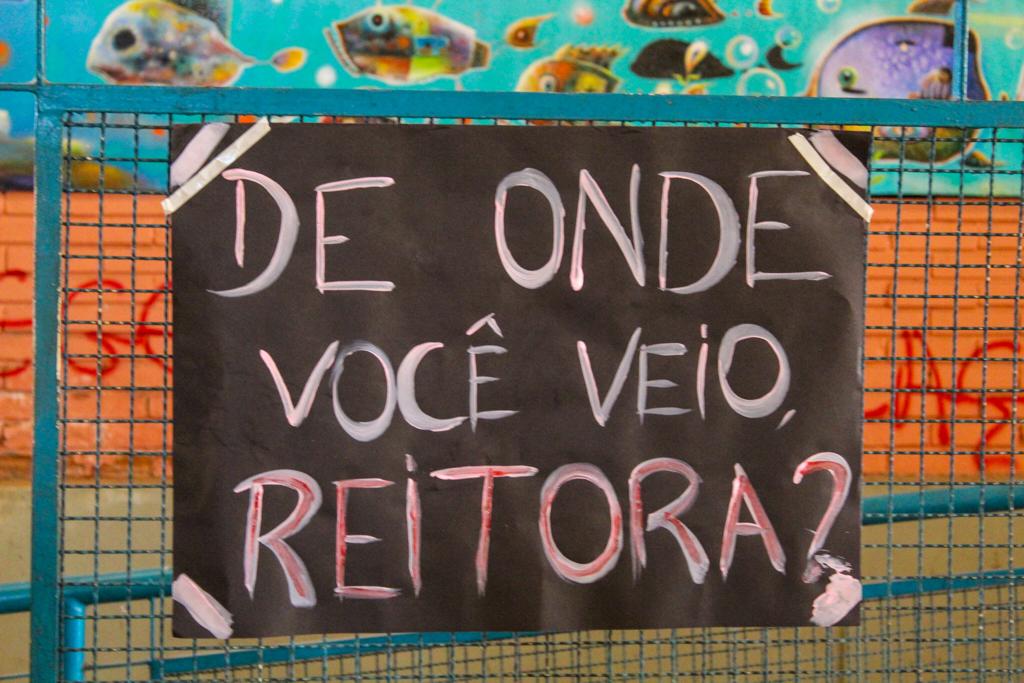 DE ONDE
VOCÊ VEIO,
REITORA?